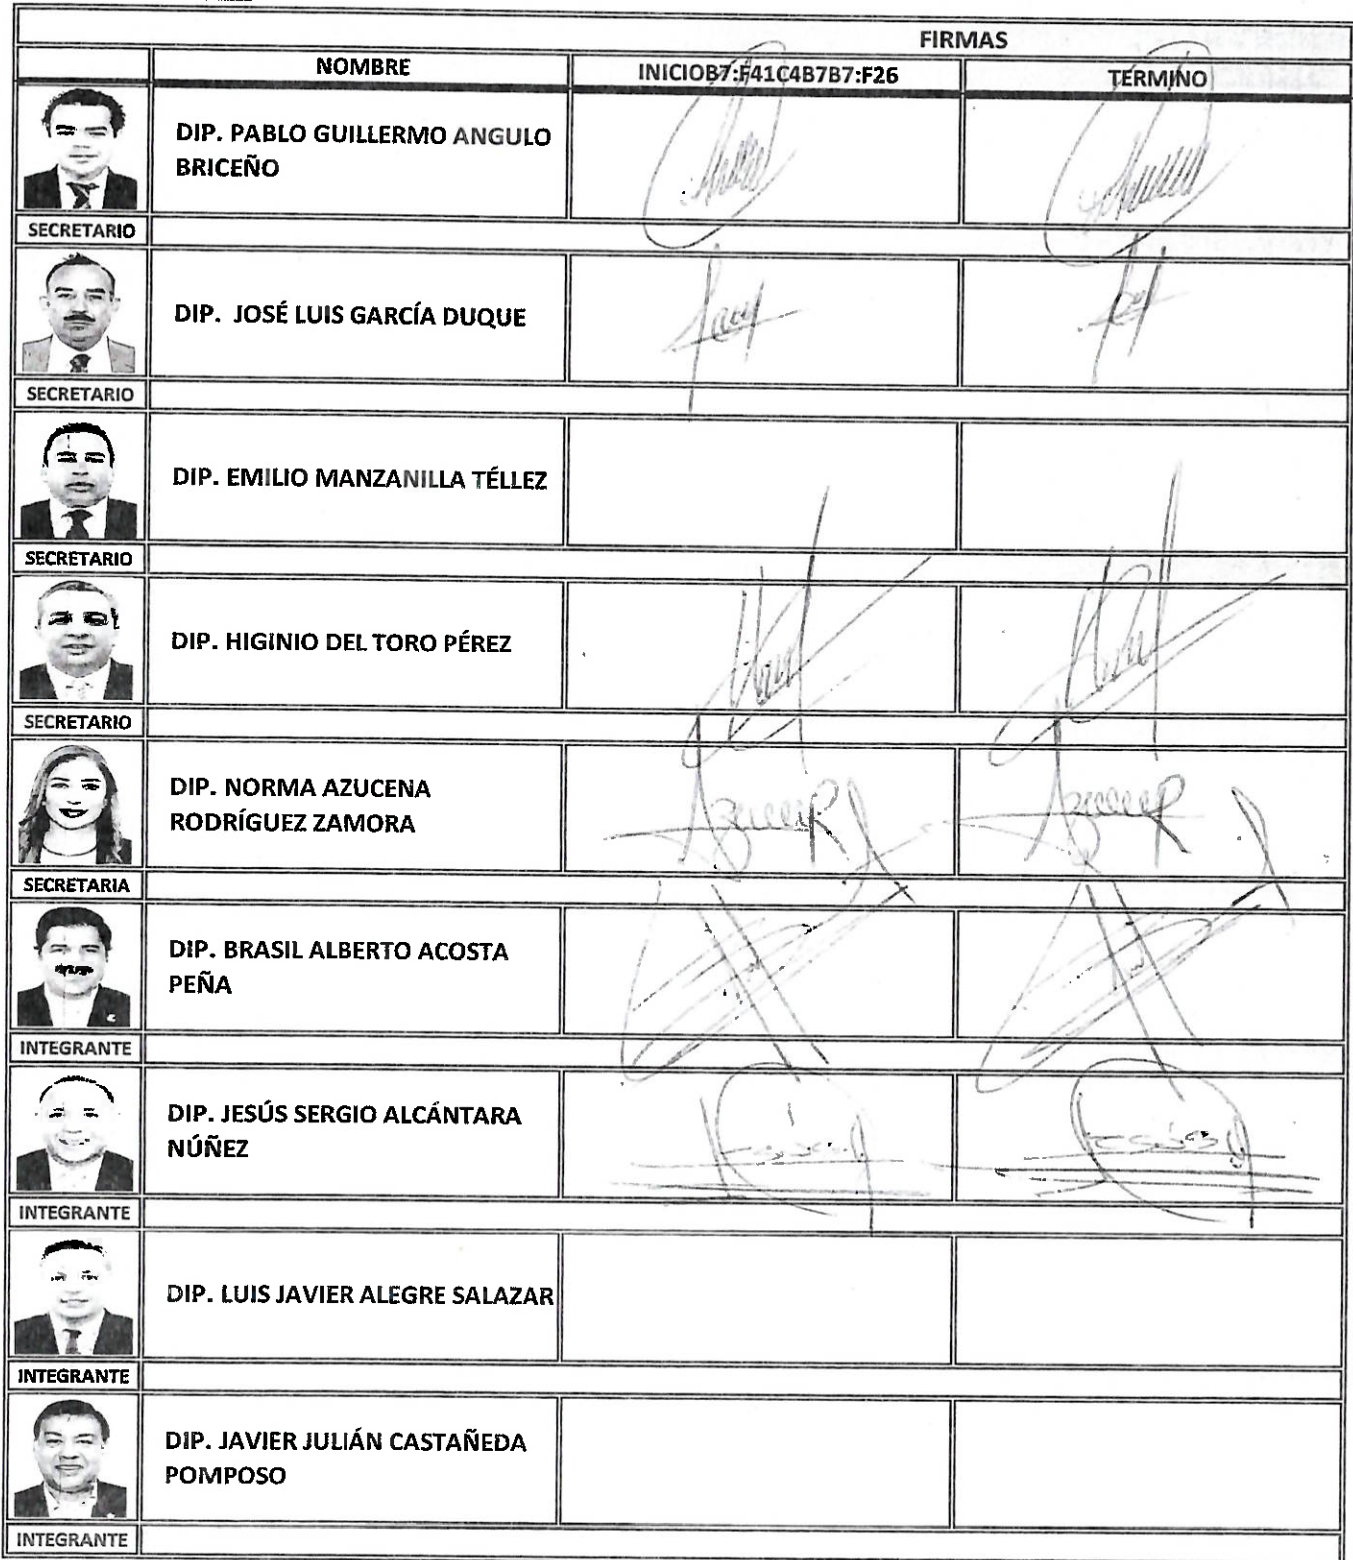 FIRMAS
NOMBRE INICIOB7:F41C4B7B7:F26 TERMINO
DIP. PABLO GUILLERMO ANGULO
BRICEÑO
SECRETARIO
DIP. JOSÉ LUIS GARCÍA DUQUE
SECRETARIO
DIP. EMILIO MANZANILLA TÉLLEZ
SECRETARIO
DIP. HIGINIO DEL TORO PÉREZ
SECRETARIO
DIP. NORMA AZUCENA
RODRÍGUEZ ZAMORA
SECRETARIA
DIP. BRASIL ALBERTO ACOSTA
PEÑA
INTEGRANTE
DIP. JESÚS SERGIO ALCÁNTARA
NÚÑEZ
INTEGRANTE
DIP. LUIS JAVIER ALEGRE SALAZAR
INTEGRANTE
DIP. JAVIER JULIÁN CASTAÑEDA
POMPOSO
INTEGRANTE